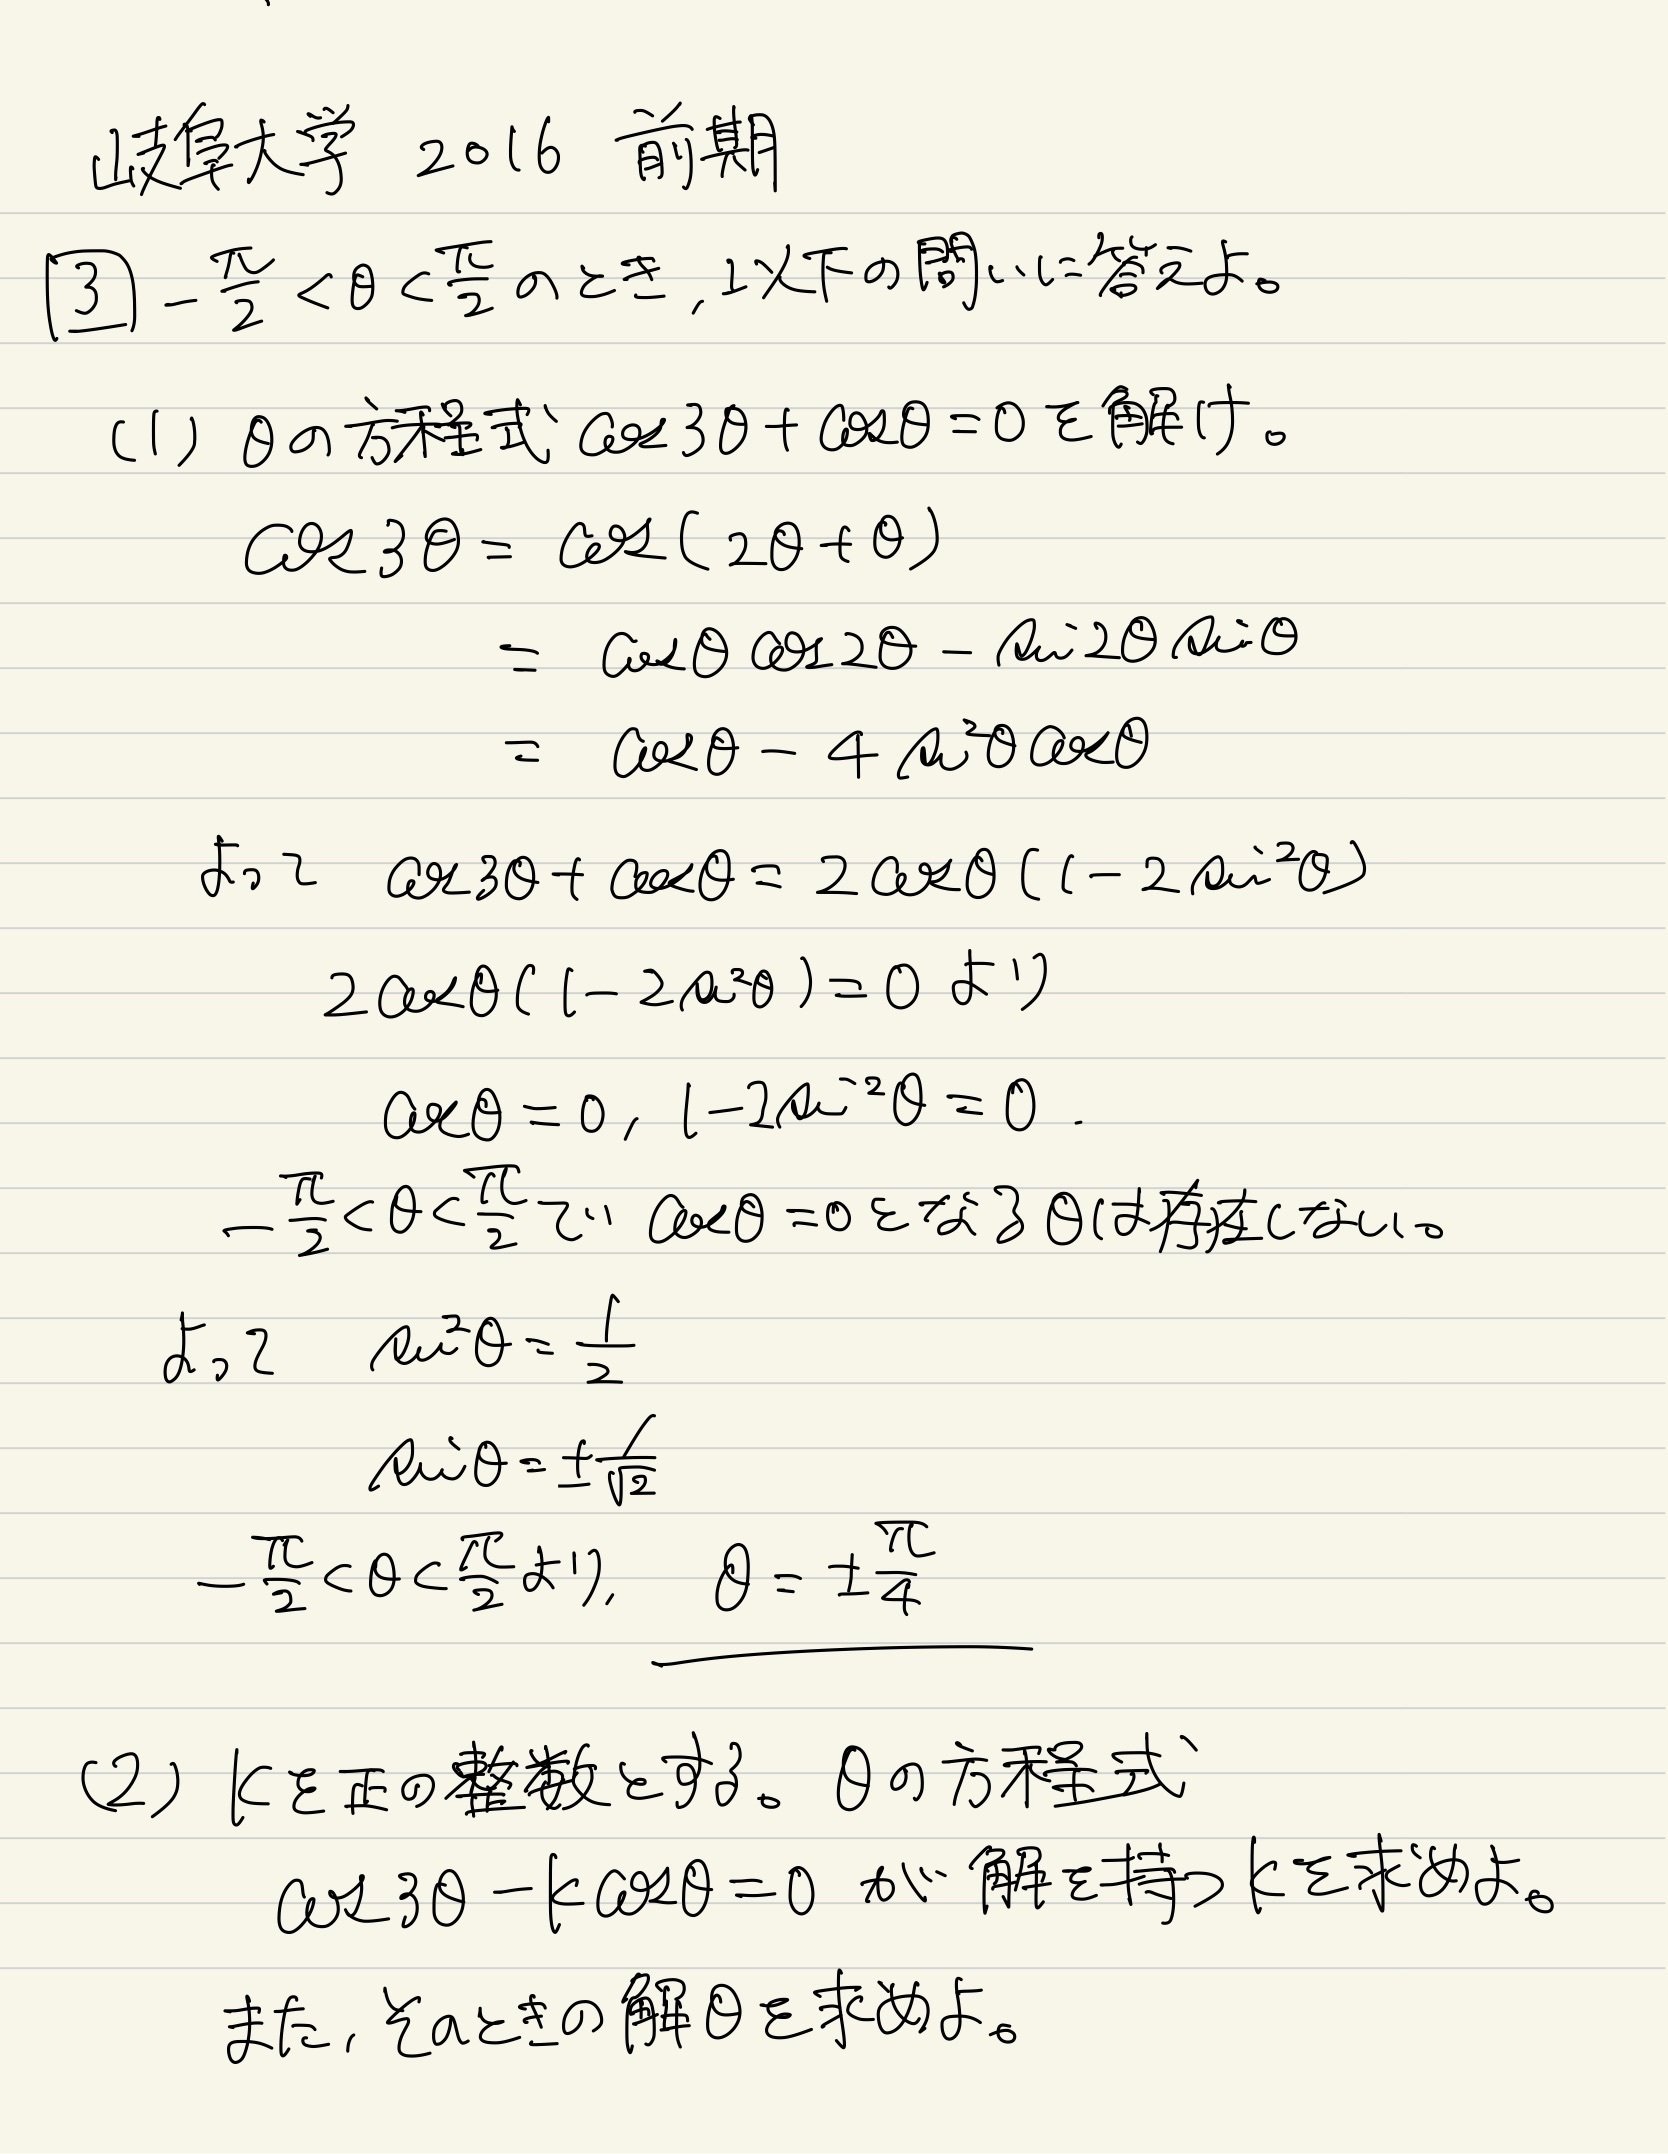 岐阜大学 2016 前期
3 -π/2 < θ < π/2 のとき, 以下の問いに答えよ。
(1) θの方程式 cos3θ + cosθ = 0 を解け。
cos3θ = cos(2θ + θ)
= cosθ cos2θ - sin2θ sinθ
= cosθ - 4 sin²θ cosθ
よって cos3θ + cosθ = 2cosθ(1 - 2 sin²θ)
2cosθ(1 - 2 sin²θ) = 0 より
cosθ = 0, 1 - 2 sin²θ = 0.
-π/2 < θ < π/2 で cosθ = 0 となるθは存在しない。
よって sin²θ = 1/2
sinθ = ±1/√2
-π/2 < θ < π/2 より, θ = ±π/4
(2) kを正の整数とする。θの方程式
cos3θ - k cosθ = 0 が解を持つkを求めよ。
また, そのときの解θを求めよ。